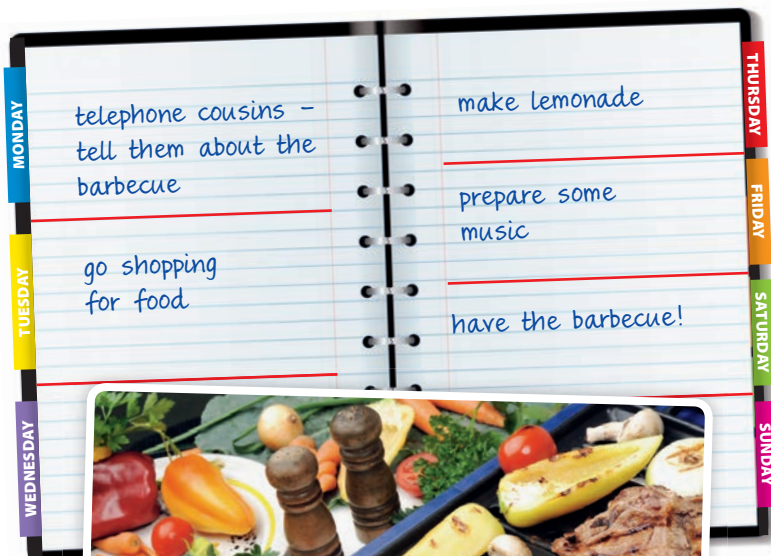 MONDAY
telephone cousins –
tell them about the
barbecue
TUESDAY
go shopping
for food
WEDNESDAY
THURSDAY
make lemonade
FRIDAY
prepare some
music
SATURDAY
have the barbecue!
SUNDAY